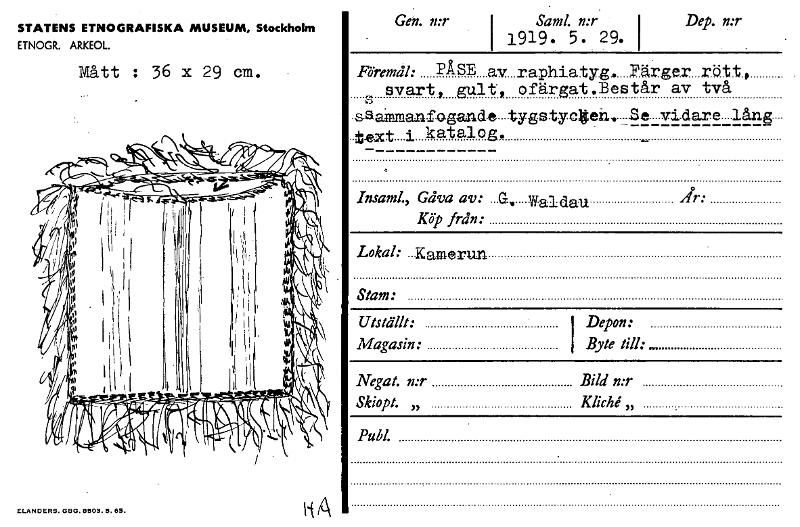 STATENS ETNOGRAFISKA MUSEUM, Stockholm
ETNOGR. ARKEOL.
Mått : 36 x 29 cm.
ELANDERS. GBG. 8503. 5. 65.
HA
Gen. n:r Saml. n:r Dep. n:r
1919. 5. 29.
Föremål: PÅSE av raphiatyg. Färger rött,
svart, gult, ofärgat.Består av två
ssammanfogande tygstycken. Se vidare lång
text i katalog.
Insaml., Gåva av: G. Waldau År:
Köp från:
Lokal: Kamerun
Stam:
Utställt: Depon:
Magasin: Byte till:
Negat. n:r Bild n:r
Skiopt. „ Kliché „
Publ.